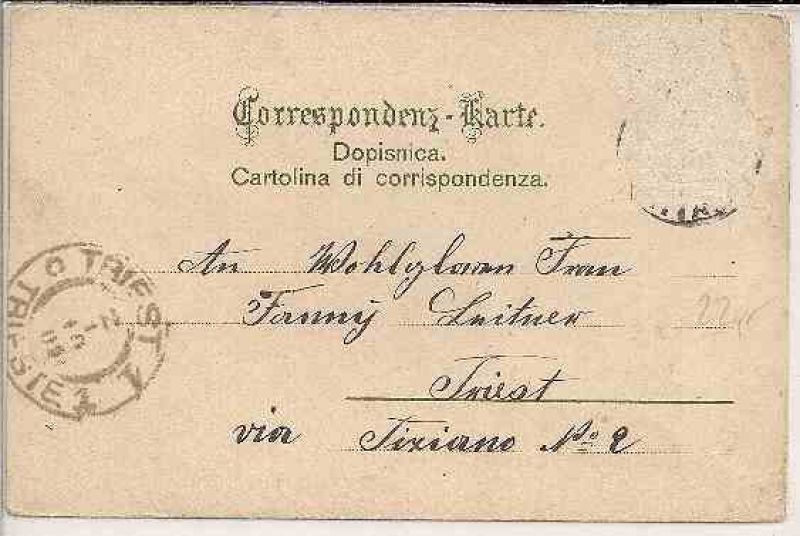 Correspondenz-Karte.
Dopisnica.
Cartolina di corrispondenza.
An Wohlgloren Frau
Fanny Leitner
Triest
via Tiziano No 2
TRIEST 1
TRIESTE 1